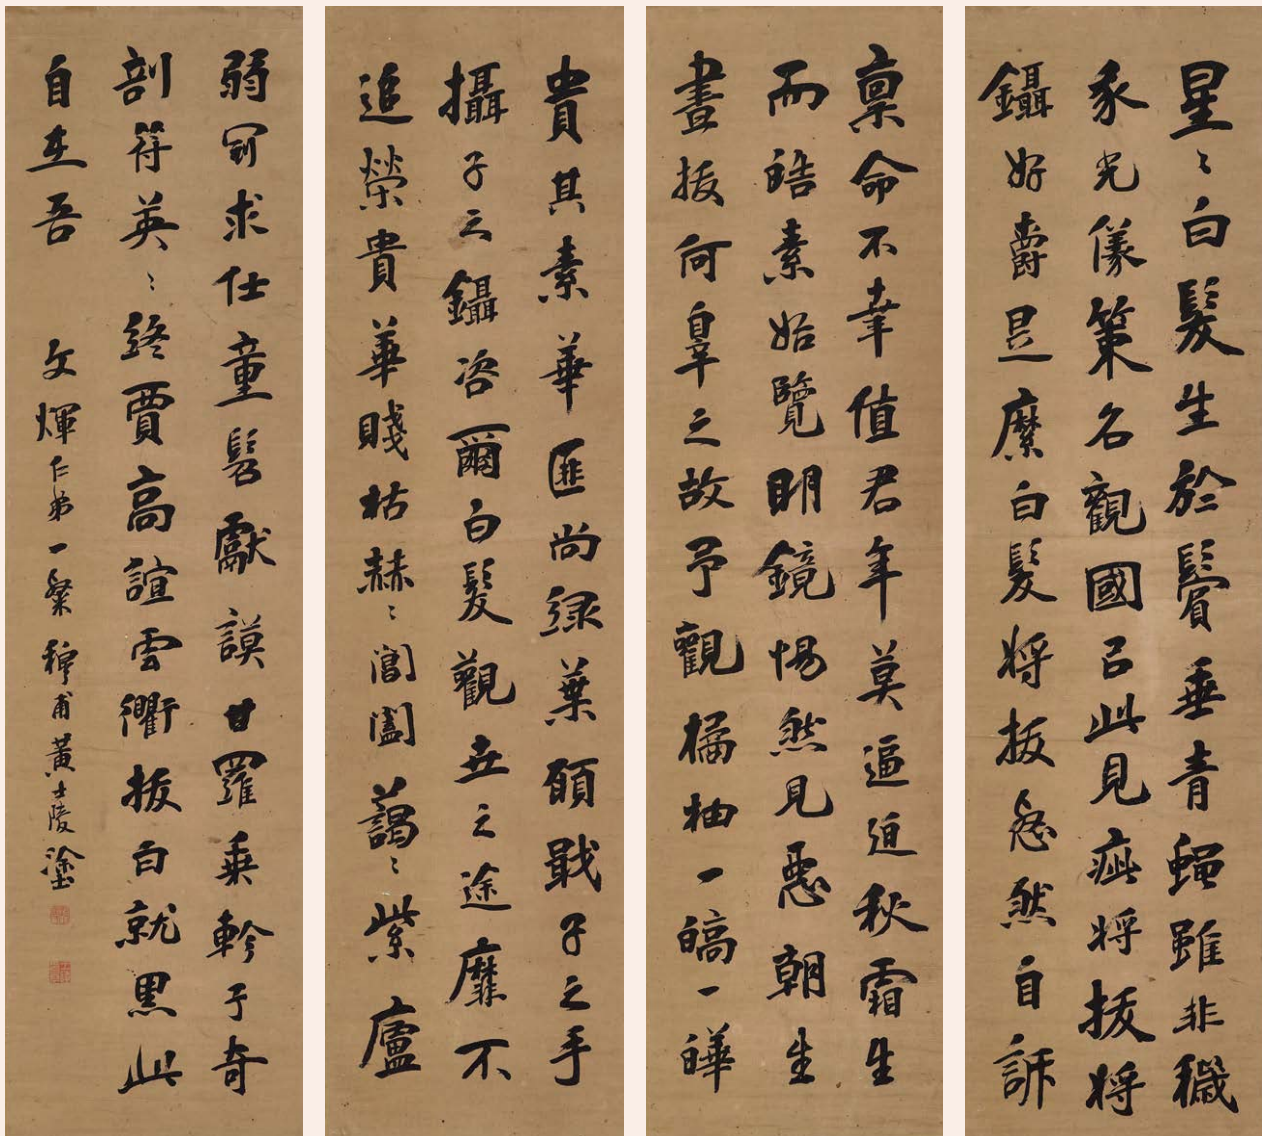 星〻白髮生於鬢垂青蠅雖非穢
我光儀策名觀國以此見疵將拔將
鑷好爵是縻白髮將拔惄然自訴
禀命不幸值君年莫逼迫秋霜生
而皓素始覽明鏡惕然見惡朝生
晝拔何辠之故予觀橘柚一皜一曄
貴其素華匪尚綠葉願戢子之手
攝子之鑷咨爾白髮觀世之途靡不
追榮貴華賤枯赫〻閶闔藹〻紫廬
弱冠求仕童髫獻謨甘羅乘軫子奇
剖符英〻終賈高諠雲衢拔白就黑此
自在吾 文煇仁弟一粲 穆甫黃士陵塗